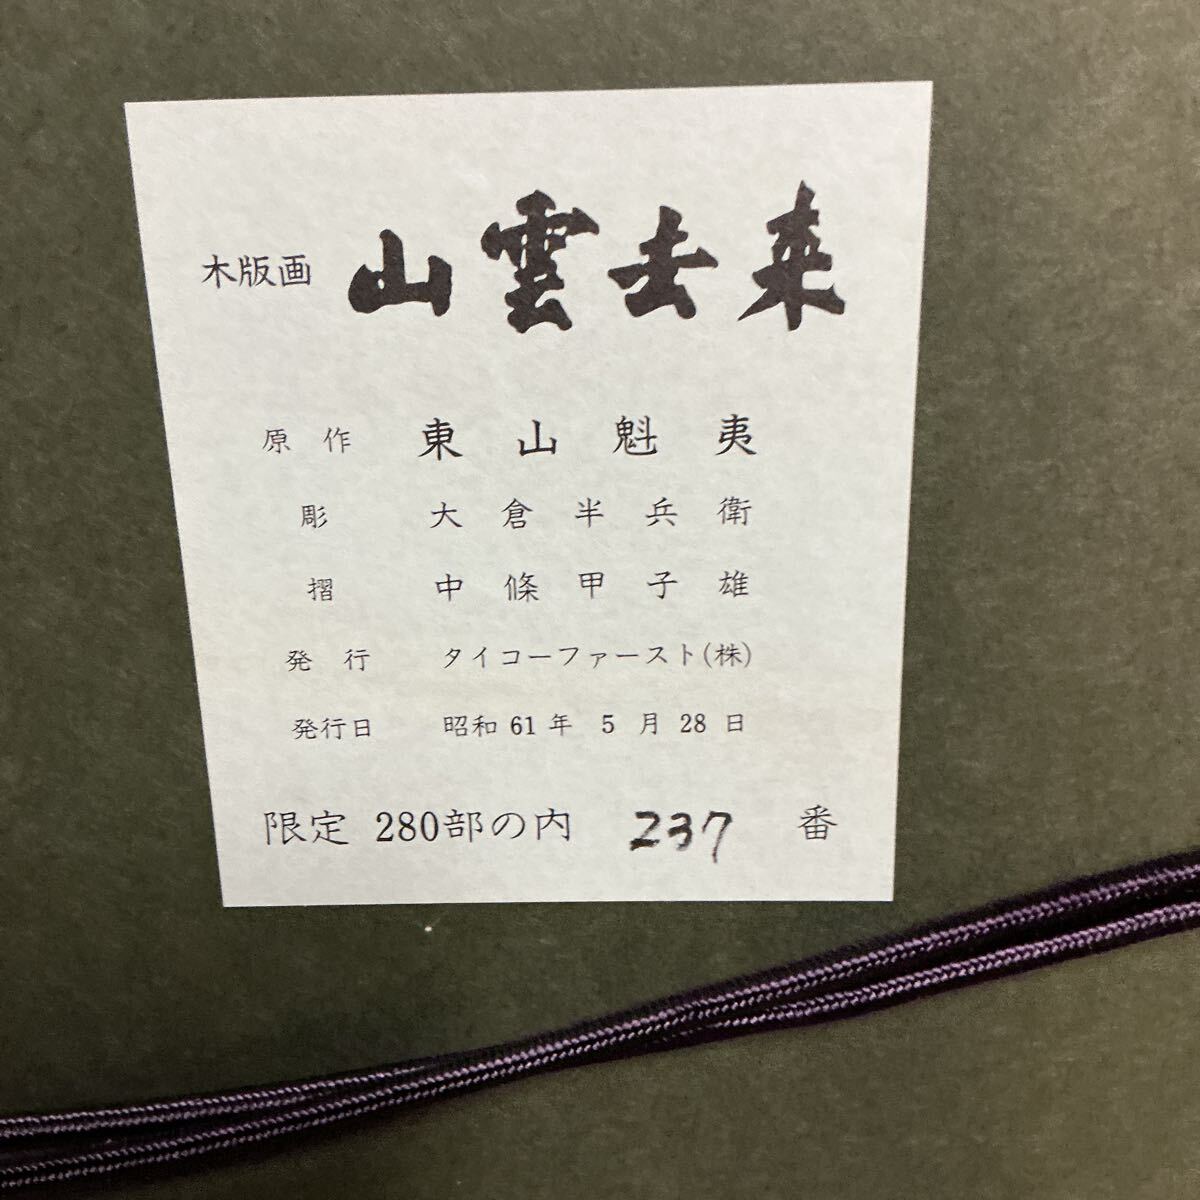 木版画 山雲去来
原作 東山魁夷
彫 大倉半兵衛
摺 中條甲子雄
発行 タイコーファースト(株)
発行日 昭和61年 5月28日
限定 280部の内 237 番